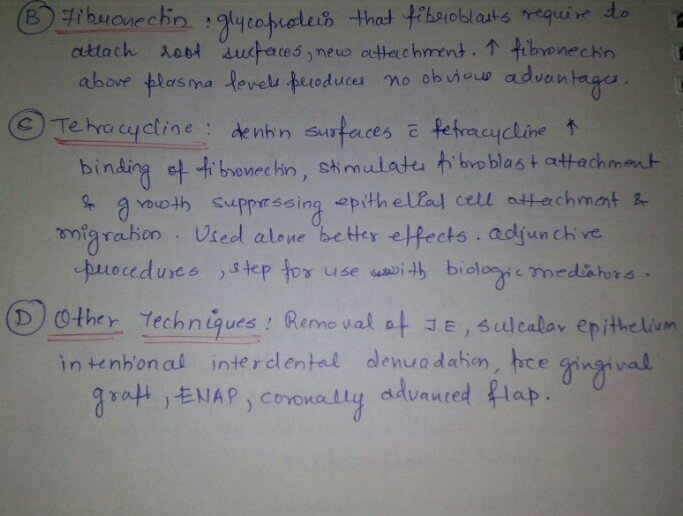 (B) Fibronectin : glycoprotein that fibroblasts require to
attach root surfaces, new attachment. ↑ fibronectin
above plasma levels produces no obvious advantages.
(C) Tetracycline : dentin surfaces c̄ tetracycline ↑
binding of fibronectin, stimulates fibroblast attachment
& growth suppressing epithelial cell attachment &
migration. Used alone better effects. adjunctive
procedures, step for use with biologic mediators.
(D) Other Techniques : Removal of JE, sulcular epithelium
intentional interdental denudation, free gingival
graft, ENAP, coronally advanced flap.